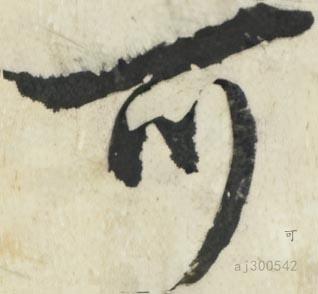 可
可
aj300542